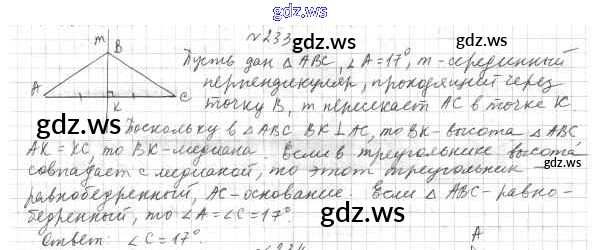 gdz.ws
№233
m
B
A
C
K
Пусть дан △ABC, ∠A=17°, m-серединный
перпендикуляр, проходящий через
точку B, m пересекает AC в точке K.
Поскольку в △ABC BK⊥AC, то BK-высота △ABC
AK=KC, то BK-медиана. Если в треугольнике высота
совпадает с медианой, то этот треугольник
равнобедренный, AC-основание. Если △ABC-равно-
бедренный, то ∠A=∠C=17°.
Ответ: ∠C=17°.
№234
gdz.ws
gdz.ws
gdz.ws
gdz.ws
gdz.ws
gdz.ws
gdz.ws